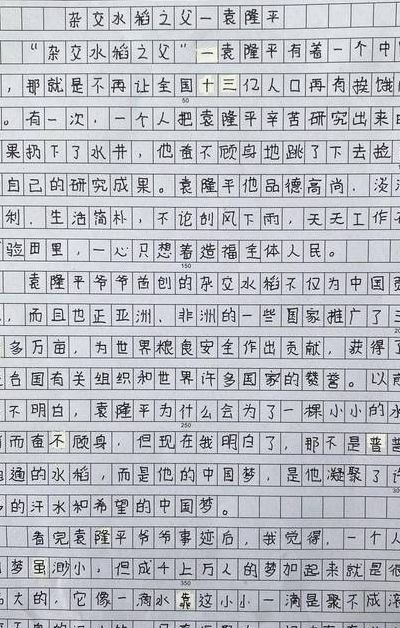 杂交水稻之父一袁隆平
“杂交水稻之父”一袁隆平有着一个中
，那就是不再让全国十三亿人口再有挨饿
50
。有一次，一个人把袁隆平辛苦研究出来
果扔下了水井，他奋不顾身地跳了下去捡
自己的研究成果。袁隆平他品德高尚，淡
利．生活简朴，不论刮风下雨，天天工作
验田里，一心只想着造福全体人民。
150
袁隆平爷爷首创的杂交水稻不仅为中国
，而且也正亚洲、非洲的一些国家推广了
多万亩，为世界粮食安全作出贡献，获得了
台国有关组织和世界许多国家的赞誉。以
不明白，袁隆平为什么会为了一棵小小的水
250
而奋不顾身，但现在我明白了，那不是普
通的水稻，而是他的中国梦，是他凝聚了
的汗水和希望的中国梦。
看完袁隆平爷爷事迹后，我觉得，一个人
梦虽渺小，但成千上万人的梦加起来就是很
350
大的，它像一滴水靠这小小一滴是聚不成